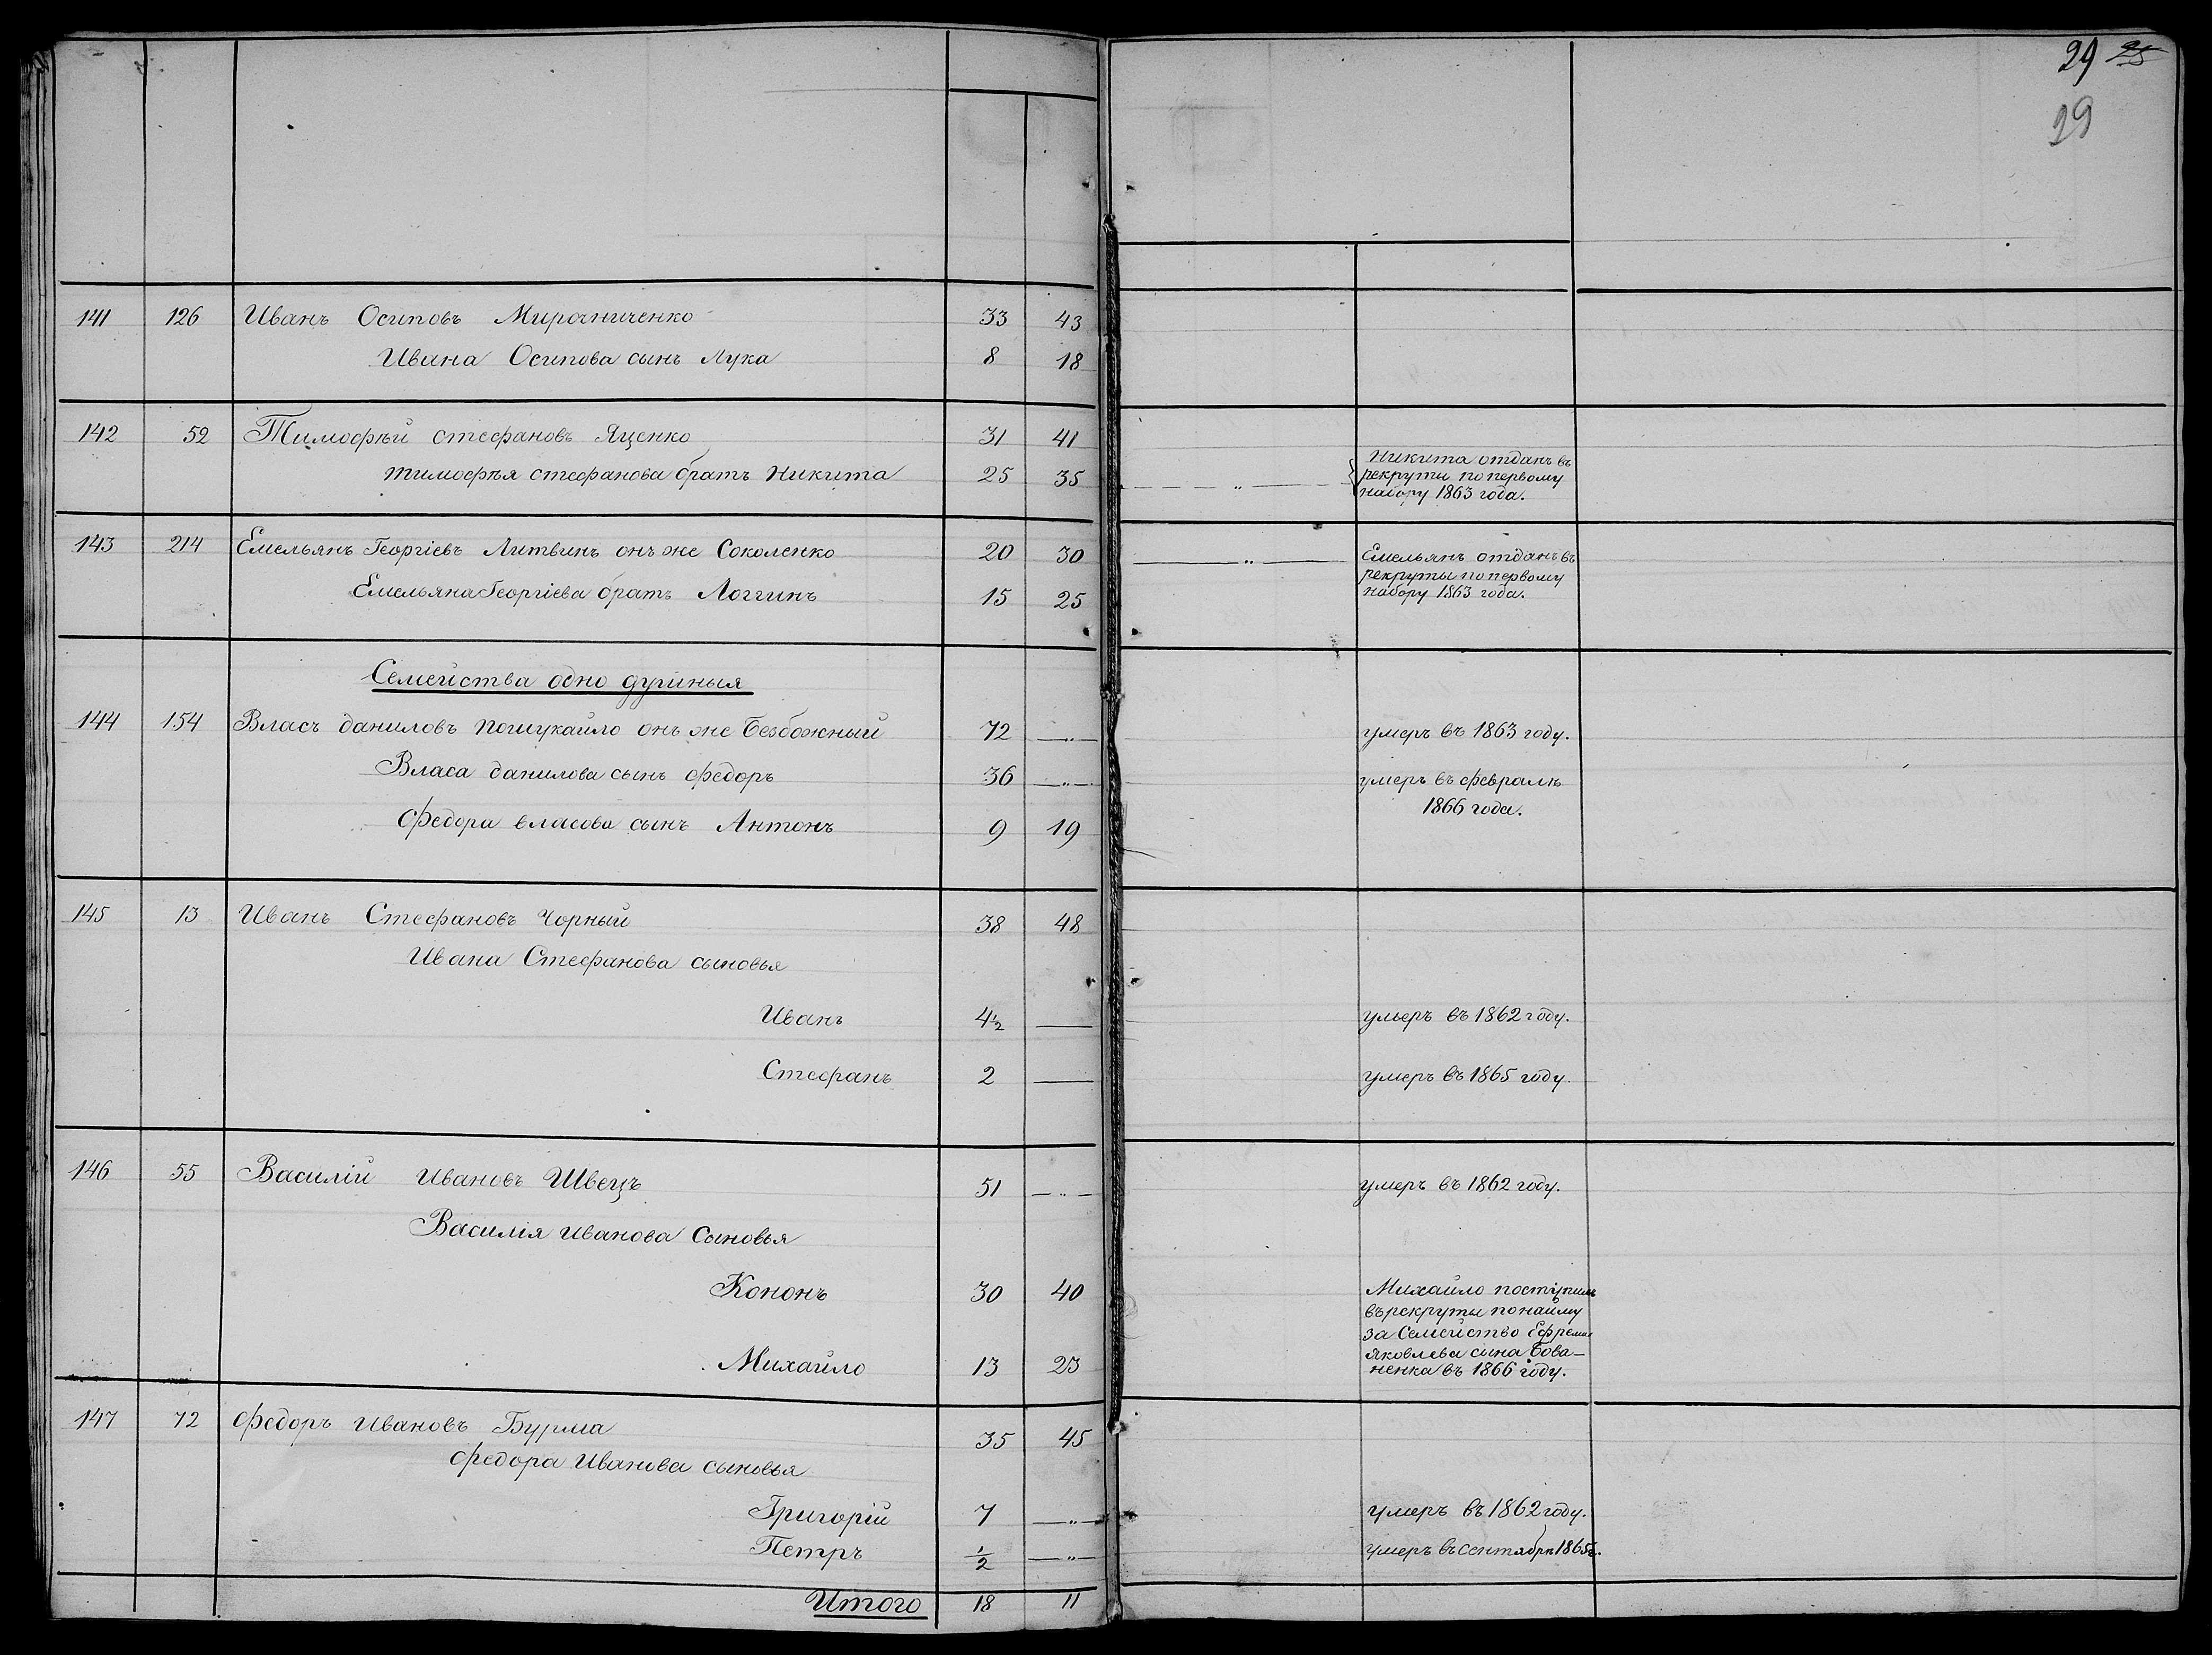 29 25
29
141 126 Иванъ Осиповъ Мирочниченко 33 43
Ивана Осипова сынъ Лука 8 18
142 52 Тимофѣй Стефановъ Яценко 31 41
Тимофѣя Стефанова братъ Никита 25 35 Никита отданъ въ
рекруты по первому
набору 1863 года.
143 214 Емельянъ Георгіевъ Литвинъ онъ же Соколенко 20 30 Емельянъ отданъ въ
рекруты по первому
Емельяна Георгіева братъ Логгинъ 15 25 набору 1863 года.
Семейства одно душныя
144 154 Власъ Даниловъ Пошукайло онъ же Безбожный 72 —„— умеръ въ 1863 году.
Власа Данилова сынъ Федоръ 36 —„— умеръ въ Февралѣ
1866 года.
Федора Власова сынъ Антонъ 9 19
145 13 Иванъ Стефановъ Чорный 38 48
Ивана Стефанова сыновья
Иванъ 4½ — умеръ въ 1862 году.
Стефанъ 2 — умеръ въ 1865 году.
146 55 Василій Ивановъ Швецъ 51 —„— умеръ въ 1862 году.
Василія Иванова Сыновья
Кононъ 30 40 Михайло поступилъ
въ рекруты по найму
за Семейство Ефрема
Яковлева сына Бова-
Михайло 13 23 ненка въ 1866 году.
147 72 Федоръ Ивановъ Бурма 35 45
Федора Иванова сыновья
Григорій 7 —„— умеръ въ 1862 году.
Петръ ½ —„— умеръ въ Сентябрѣ 1865 г.
Итого 18 11